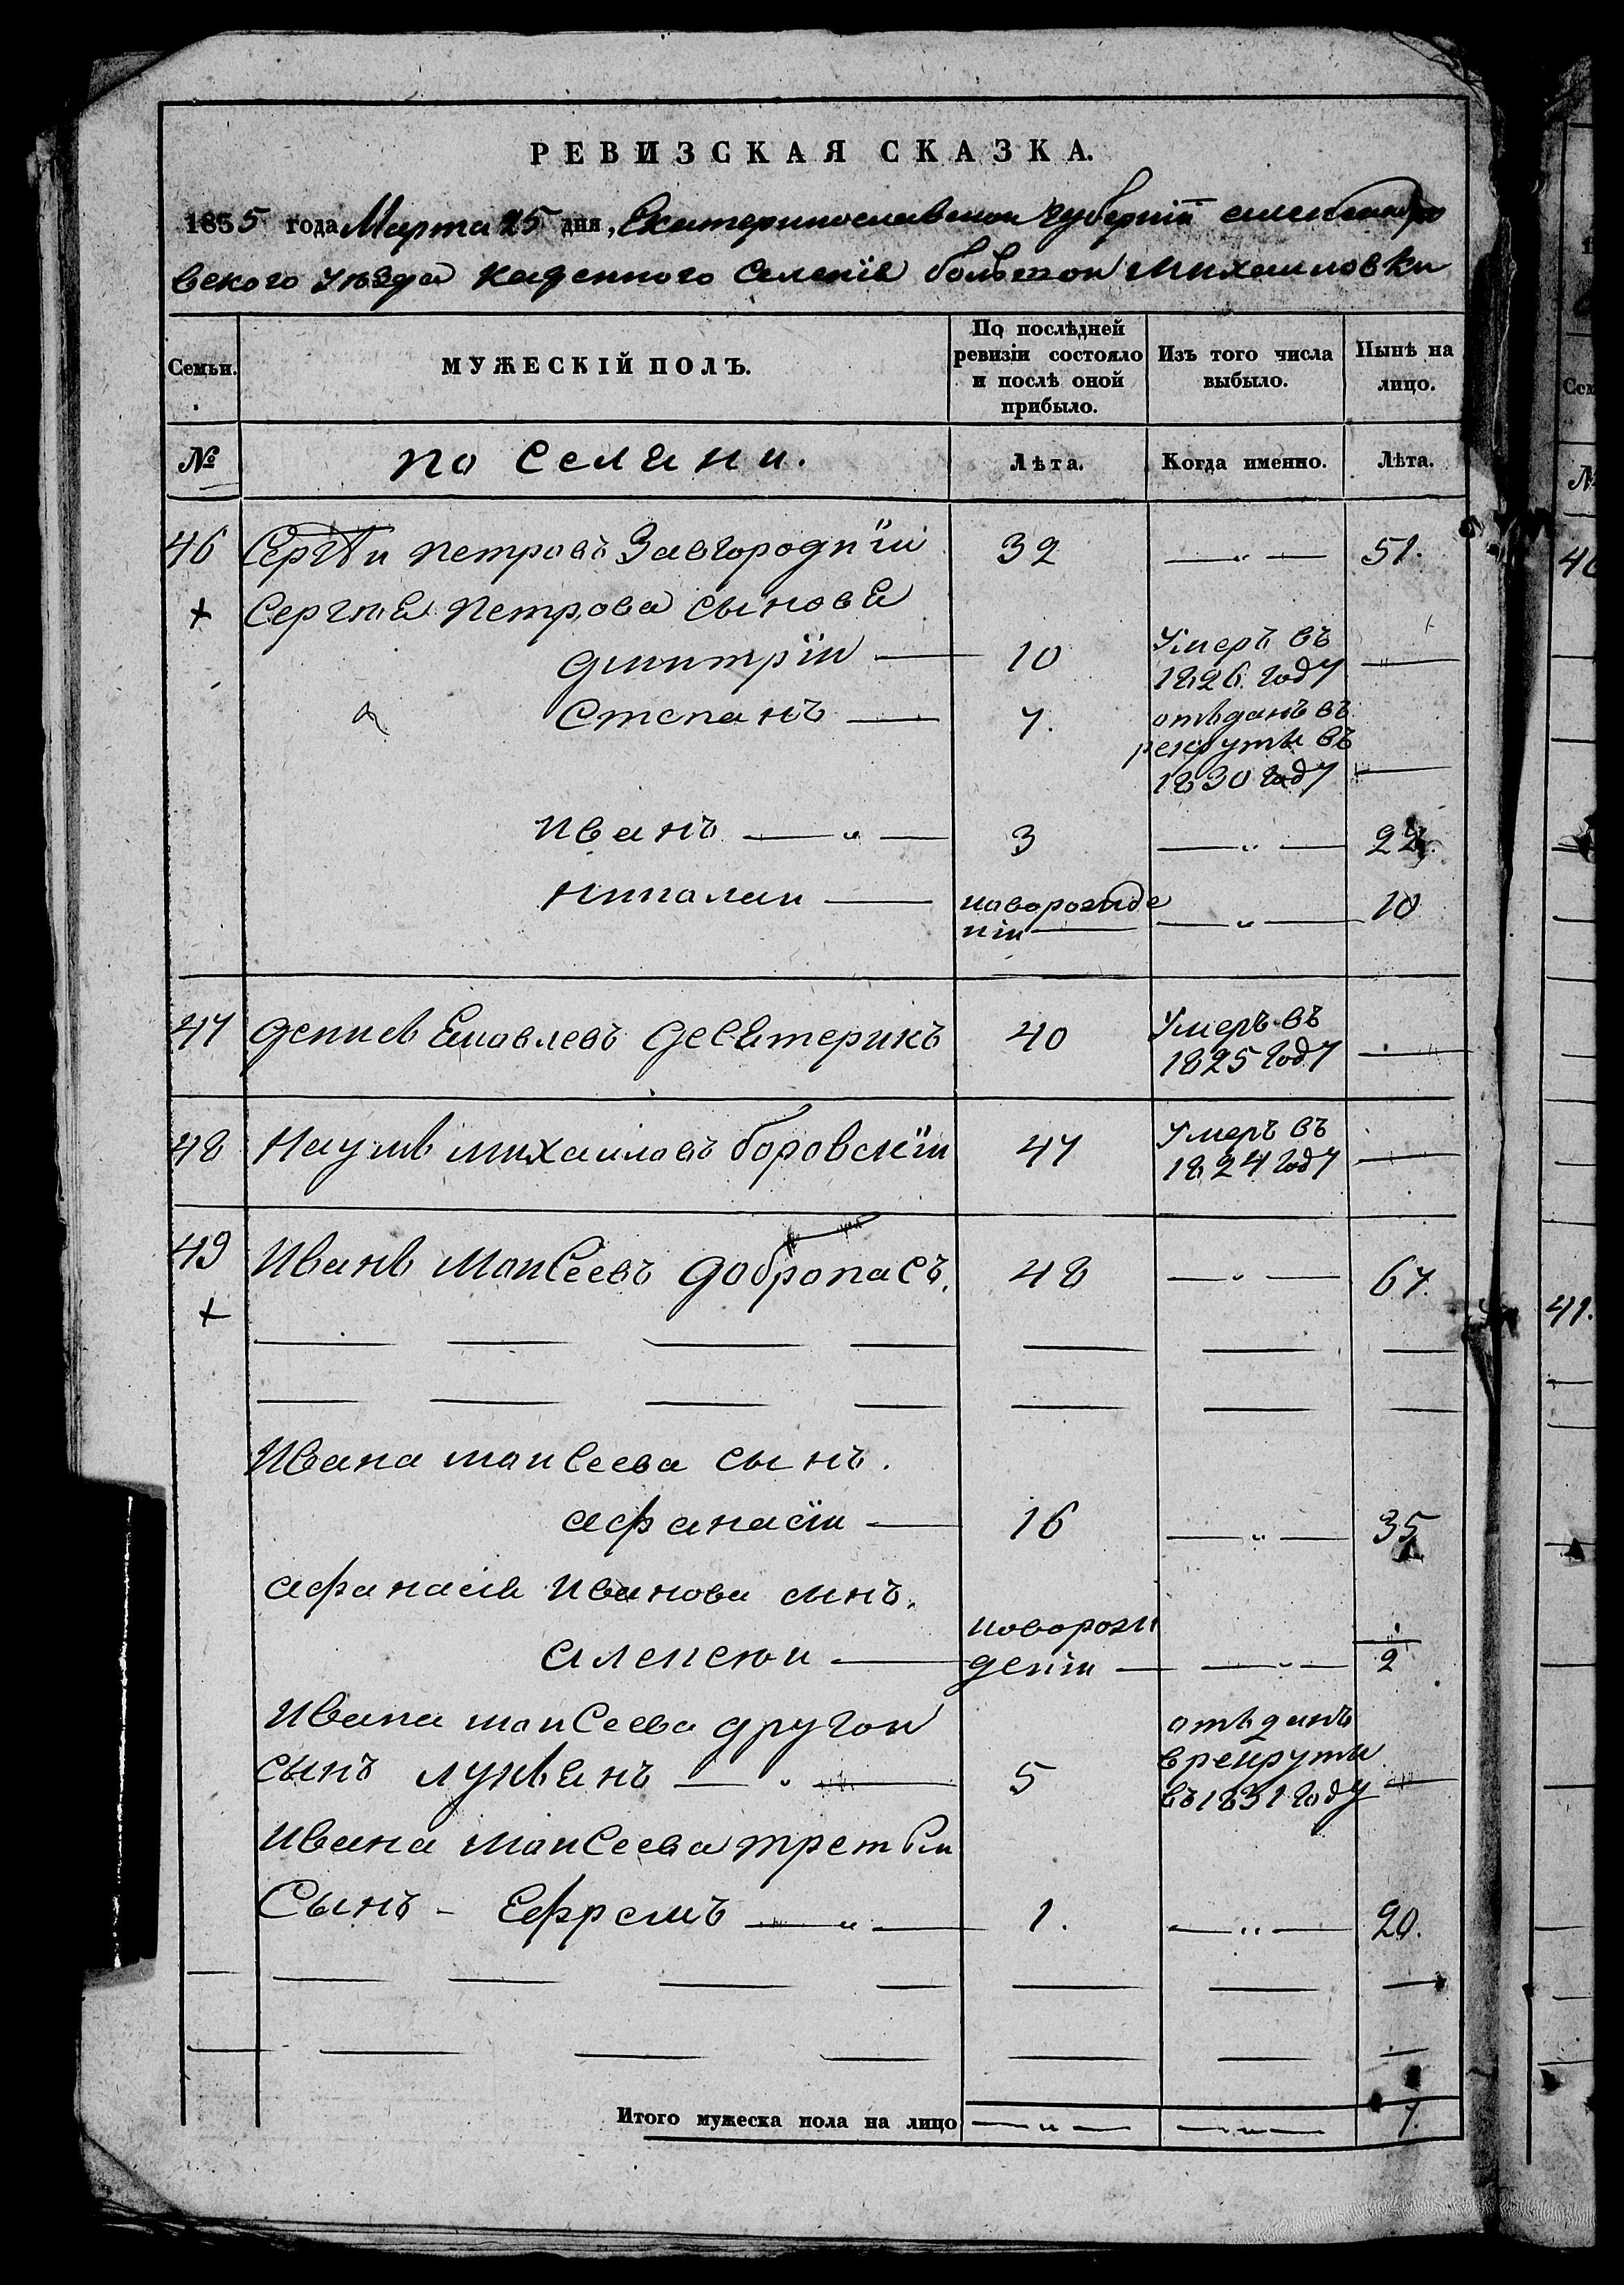 РЕВИЗСКАЯ СКАЗКА.
1835 года Марта 25 дня, Екатеринославской губернїи александро
вского уѣзда казенного селенїя большой михаиловки
Семьи. МУЖЕСКІЙ ПОЛЪ. По послѣдней ревизіи состояло и послѣ оной прибыло. Изъ того числа выбыло. Нынѣ на лицо.
№ поселяни. Лѣта. Когда именно. Лѣта.
46 Сергѣи петровъ Завгороднїи 32 — „ — 51.
+ Сергѣя петрова сыновя
дмитрїи — 10 Умеръ въ 1826 году —
Степанъ — 7. отъданъ въ рекруты въ 1830 году —
иванъ — „ — 3 — „ — 22.
николаи — новорожде нїи — — „ — 10
47 денисъ Яковлевъ десятерикъ 40 Умеръ въ 1825 году —
48 Наумъ михаиловъ боровскїи 47 Умеръ въ 1824 году —
49 Иванъ Моисеевъ добропасъ, 48 — „ — 67.
+
Ивана моисеева сынъ.
афанасїи — 16 — „ — 35
афанасїя иванова сынъ.
алексеи — новорож денїи — — „ — 2
Ивана моисеева другои
сынъ лукянъ — „ — 5 отъданъ врекруты въ 1831 году —
Ивана моисеева третьи
Сынъ - Ефремъ — „ — 1. — „ — 20.
Итого мужеска пола на лицо — „ — — „ — 7.
46
41.